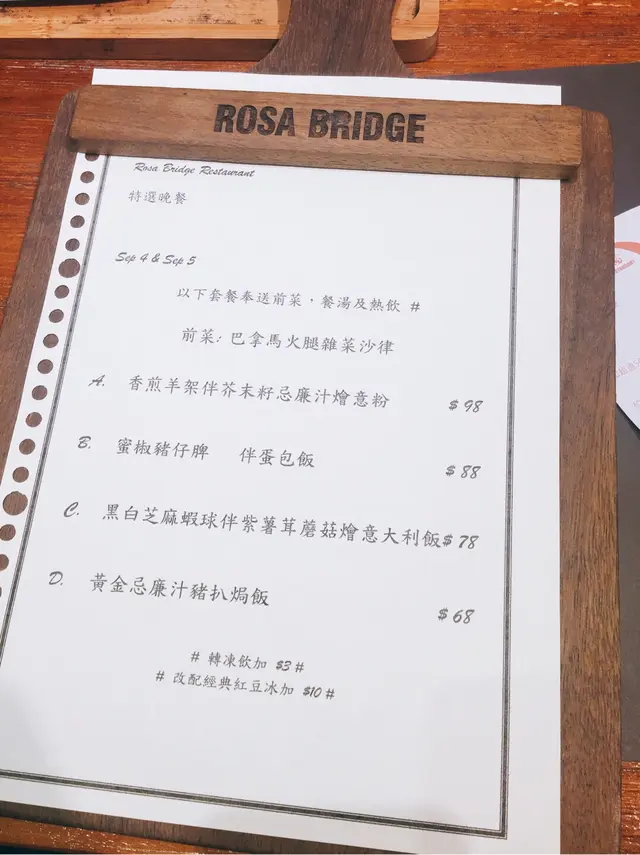 ROSA BRIDGE
Rosa Bridge Restaurant
特選晚餐
Sep 4 & Sep 5
以下套餐奉送前菜，餐湯及熱飲 #
前菜: 巴拿馬火腿雜菜沙律
A. 香煎羊架伴芥末籽忌廉汁燴意粉 $98
B. 蜜椒豬仔脾 伴蛋包飯 $88
C. 黑白芝麻蝦球伴紫薯茸蘑菇燴意大利飯$78
D. 黃金忌廉汁豬扒焗飯 $68
# 轉凍飲加 $3 #
# 改配經典紅豆冰加 $10 #